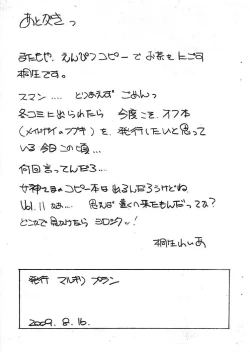 あとがきっ
またもや、えんぴつコピーで お茶をにごす
桐生です。
スマン.... とりあえず ごめんっ
冬コミに出られたら 今度こそ、オフ本
を、発行したいと思って
いる今日この頃...
何回言ってんだろ...
女神さまのコピー本は 出るんだろうけどね
Vol.11 かぁ... 思えば 遠くへ来たもんだってか?
どこかで 見かけたら ヨロシクッ!
発行 マルキリ プラン
2009. 8. 16.